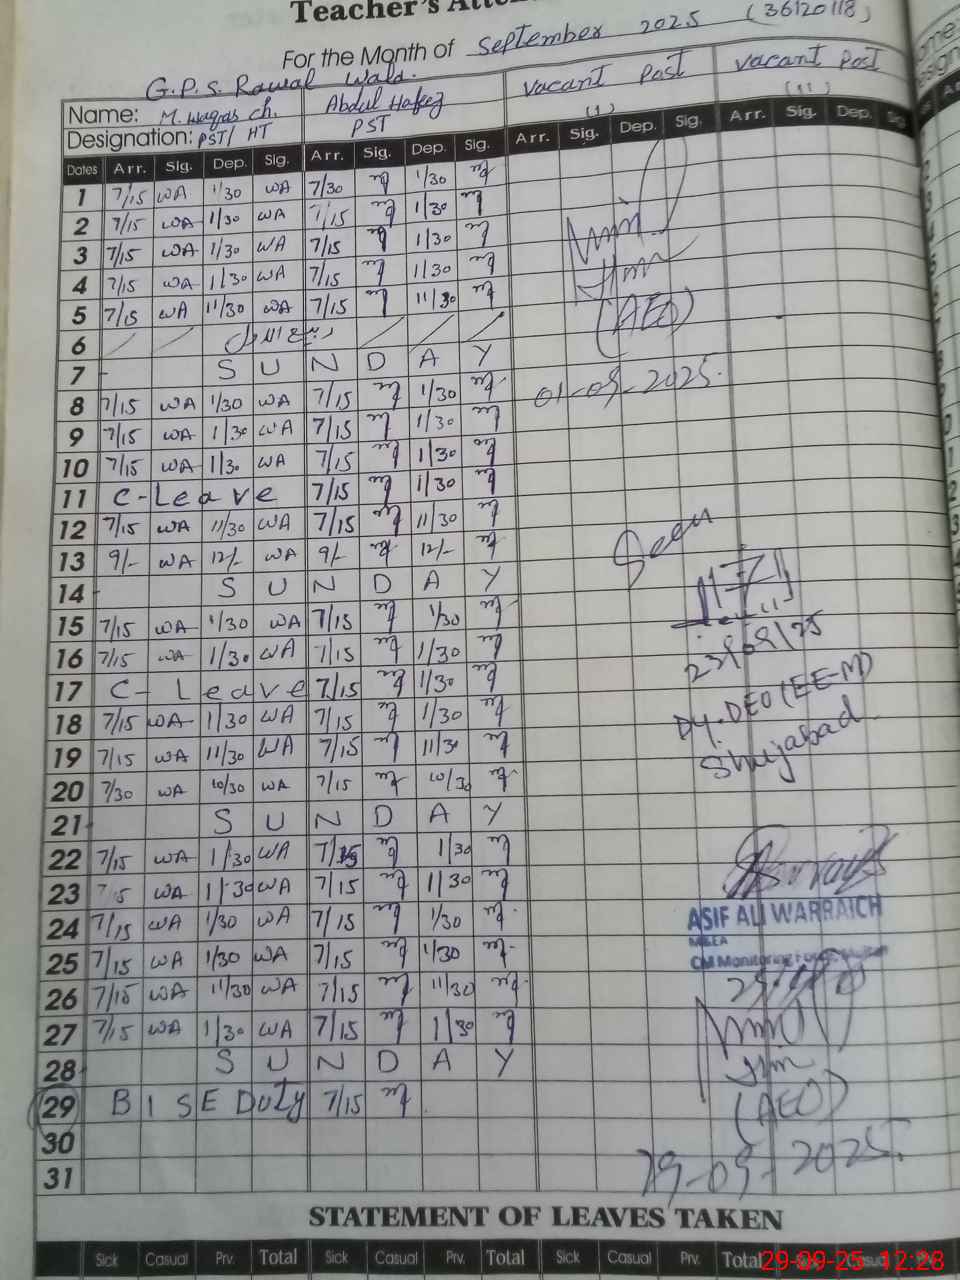 Teacher's Atten
For the Month of September 2025 (36120118)
G.P.S. Rawal Wala.
Name: M. Waqas Ch. Abdul Hafeez Vacant Post (1) Vacant Post (11)
Designation: PST/ HT PST
Dates Arr. Sig. Dep. Sig. Arr. Sig. Dep. Sig. Arr. Sig. Dep. Sig. Arr. Sig. Dep. Sig
1 7/15 WA 1/30 WA 7/30 1/30
2 7/15 WA 1/30 WA 7/15 1/30
3 7/15 WA 1/30 WA 7/15 1/30
4 7/15 WA 1/30 WA 7/15 1/30
5 7/15 WA 11/30 WA 7/15 11/30
(AEO)
6
7 S U N D A Y
01-09-2025.
8 7/15 WA 1/30 WA 7/15 1/30
9 7/15 WA 1/30 WA 7/15 1/30
10 7/15 WA 1/30 WA 7/15 1/30
11 C-Leave 7/15 1/30
12 7/15 WA 11/30 WA 7/15 11/30
13 9/- WA 12/- WA 9/- 12/-
Seen
14 S U N D A Y
15 7/15 WA 1/30 WA 7/15 1/30
16 7/15 WA 1/30 WA 7/15 1/30
23/09/25
17 C-Leave 7/15 1/30
18 7/15 WA 1/30 WA 7/15 1/30
Dy. DEO (EE-M)
19 7/15 WA 11/30 WA 7/15 11/30
Shujabad
20 7/30 WA 10/30 WA 7/15 10/30
21 S U N D A Y
22 7/15 WA 1/30 WA 7/15 1/30
23 7/15 WA 1/30 WA 7/15 1/30
24 7/15 WA 1/30 WA 7/15 1/30
ASIF ALI WARRAICH
MEA
25 7/15 WA 1/30 WA 7/15 1/30
CM Monitoring Force, Multan
26 7/15 WA 11/30 WA 7/15 11/30
27 7/15 WA 1/30 WA 7/15 1/30
28 S U N D A Y
29 BISE Duty 7/15
(AEO)
30
29-09-2025.
31
STATEMENT OF LEAVES TAKEN
Sick Casual Prv. Total Sick Casual Prv. Total Sick Casual Prv. Total Sick Casual Prv.
29-09-25 12:28